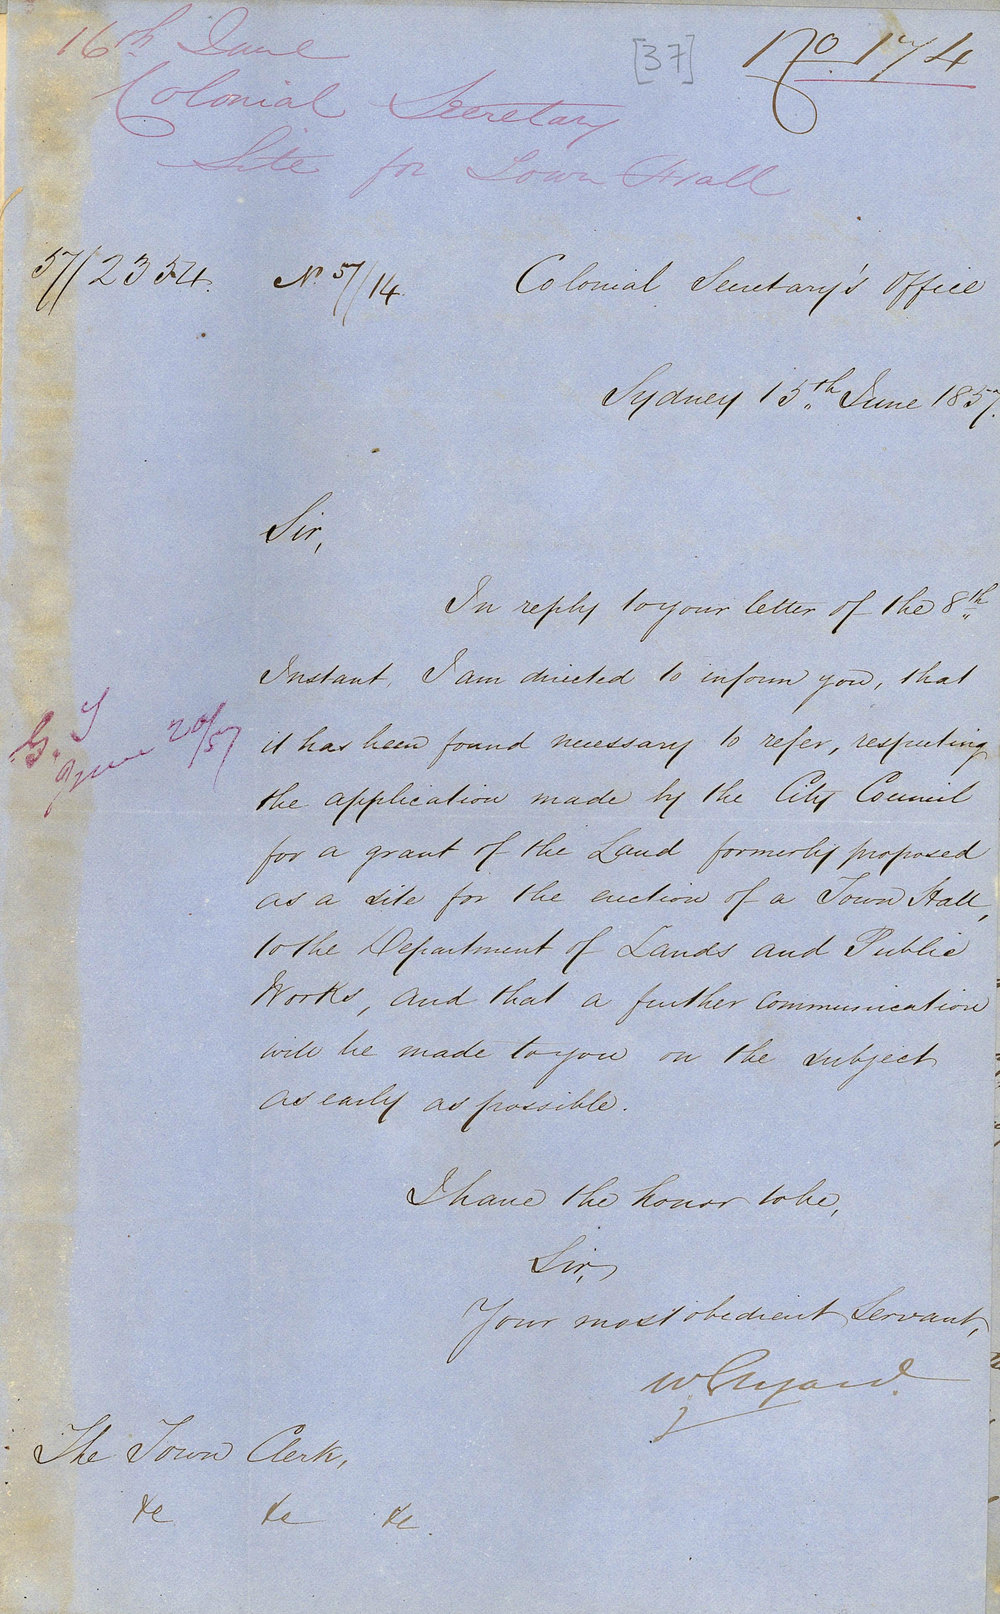 16th June
[37]
No. 174
Colonial Secretary
Site for Town Hall
57/2354.
No. 57/14.
Colonial Secretary's Office
Sydney 15th June 1857.
Sir,
In reply to your letter of the 8th
Instant, I am directed to inform you, that
it has been found necessary to refer, respecting
the application made by the City Council
for a grant of the Land formerly proposed
as a site for the erection of a Town Hall,
to the Department of Lands and Public
Works, and that a further communication
will be made to you on the subject
as early as possible.
June 20/57
I have the honor to be,
Sir,
Your most obedient Servant,
The Town Clerk,
&c &c &c.